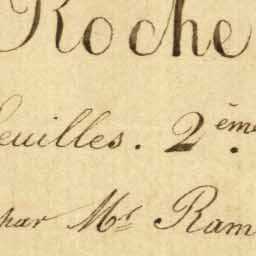 Roche
feuilles. 2ème
par Mr Ram